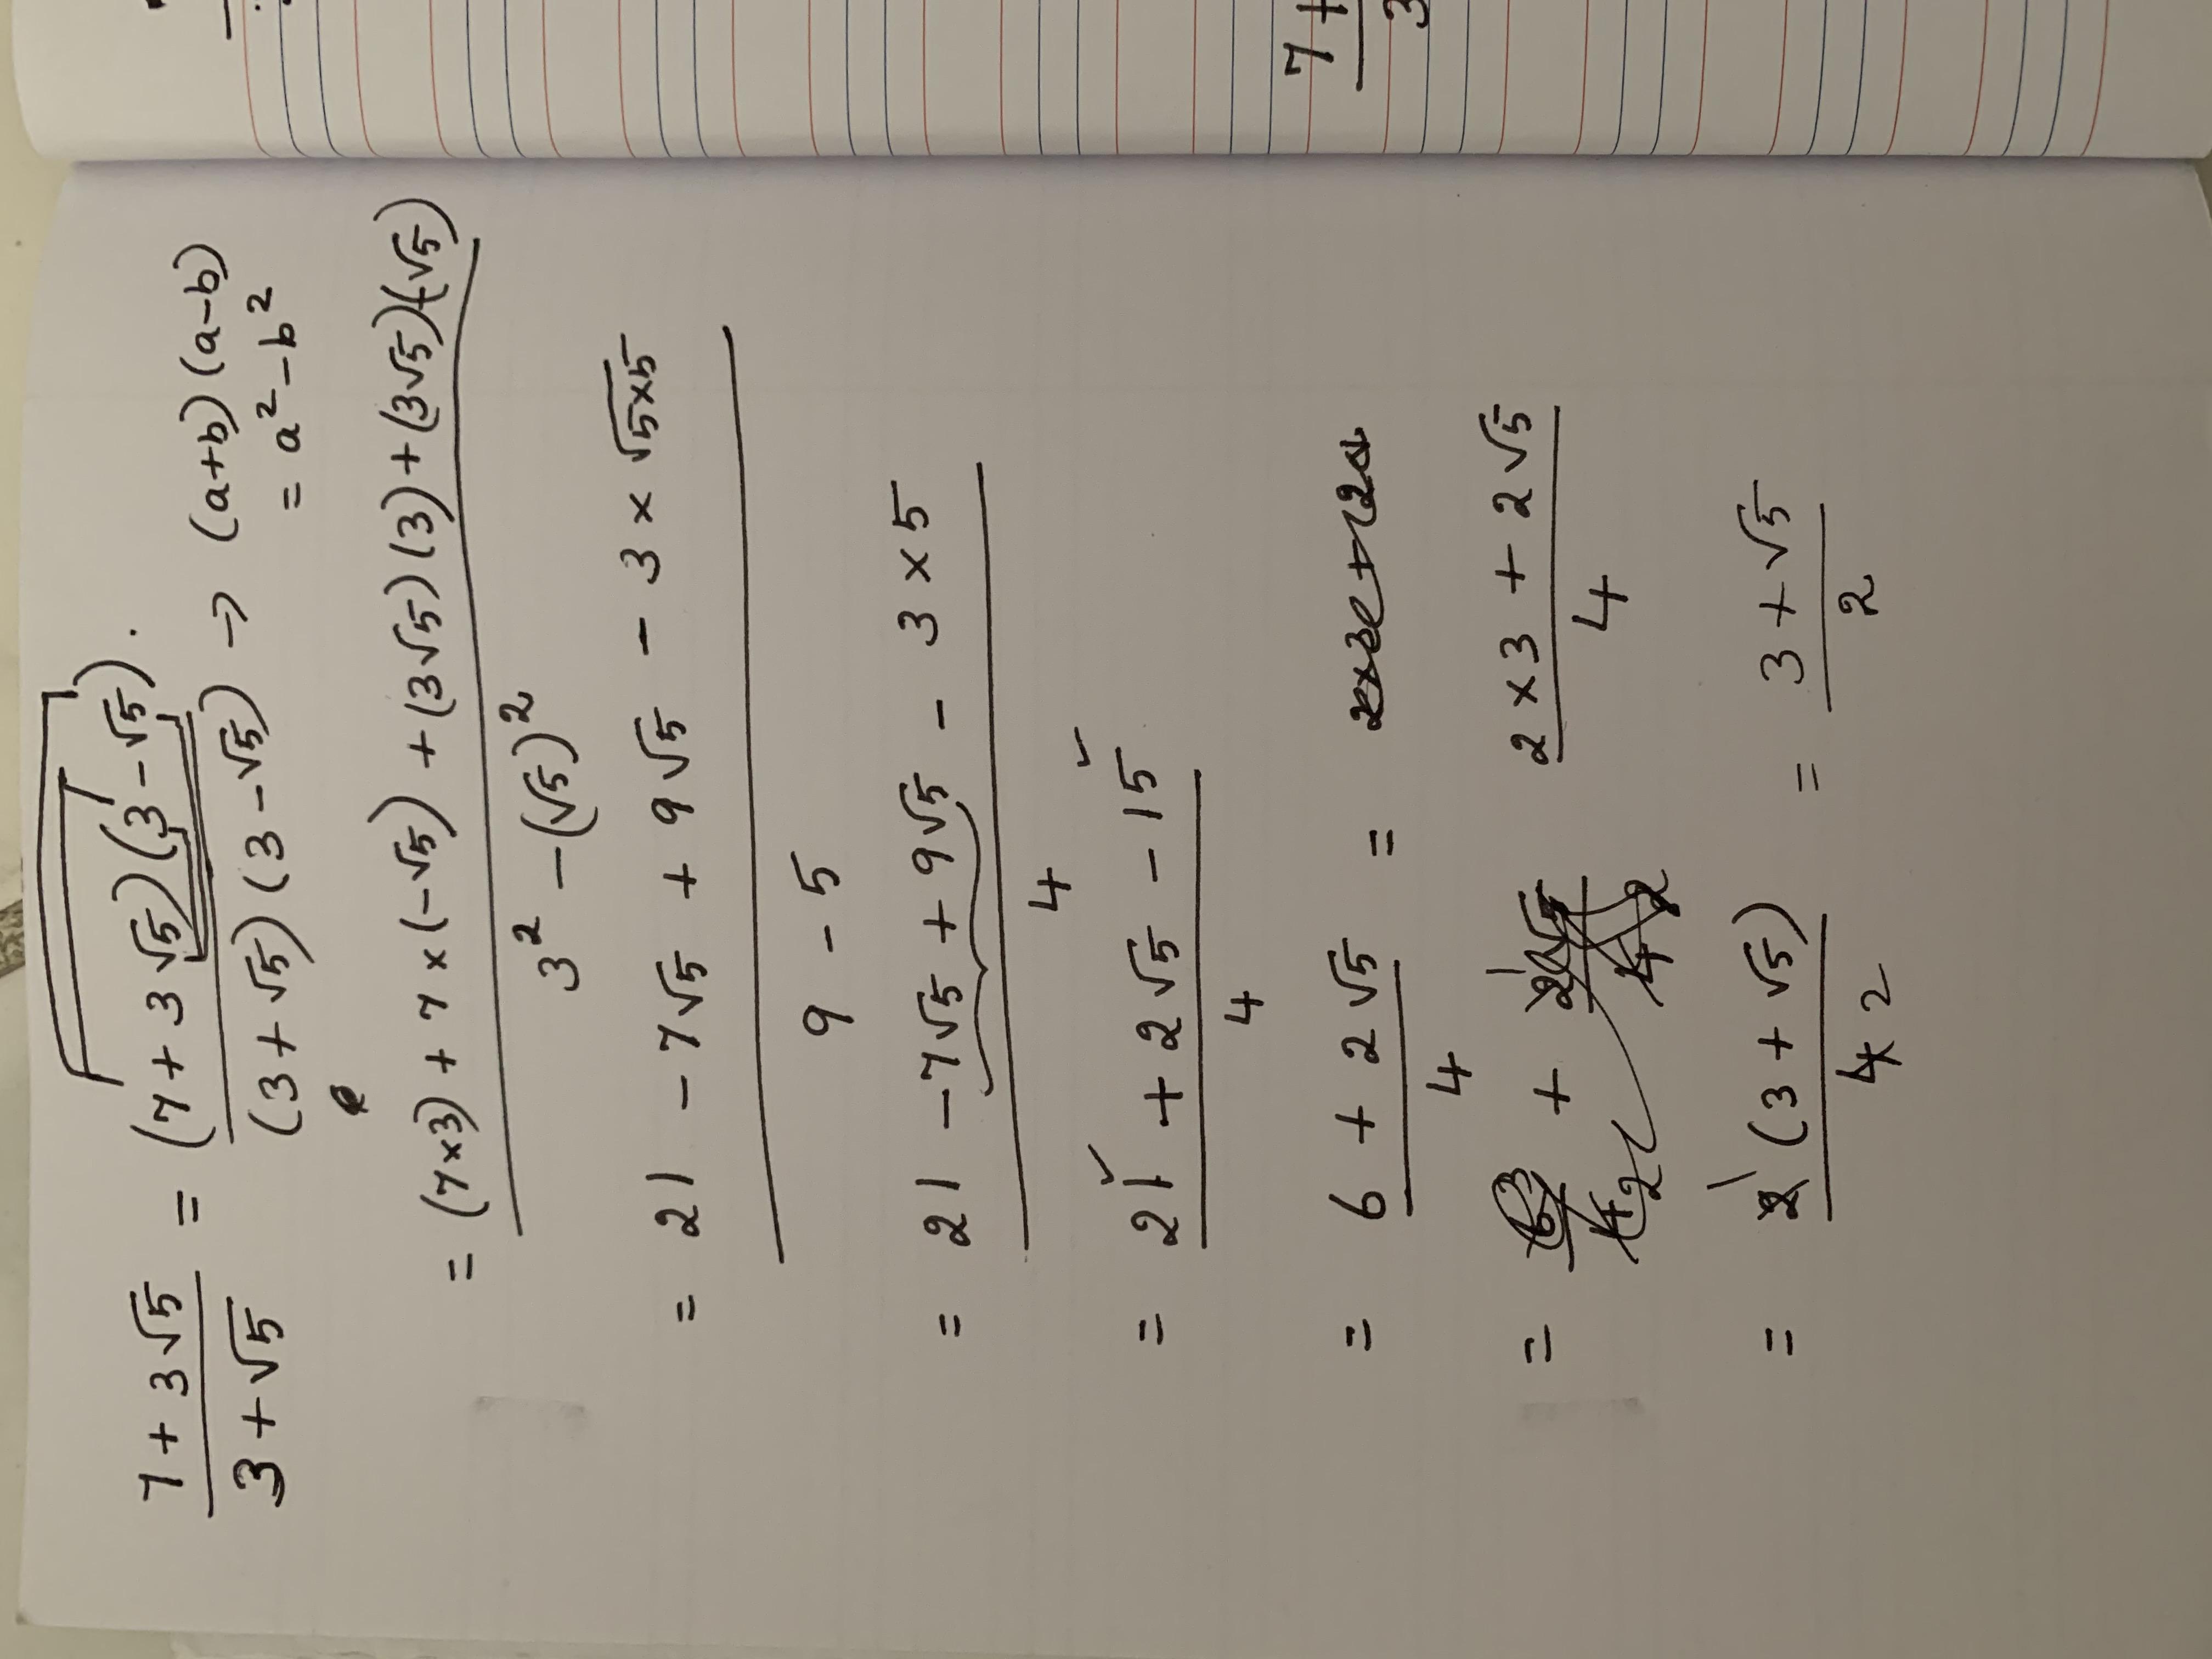 7 + 3√5 / 3 + √5 = (7 + 3√5)(3 - √5) / (3 + √5)(3 - √5) → (a+b)(a-b)
= a² - b²
= (7×3) + 7×(-√5) + (3√5)(3) + (3√5)(-√5) / 3² - (√5)²
= 21 - 7√5 + 9√5 - 3 × √5×5 / 9 - 5
= 21 - 7√5 + 9√5 - 3 × 5 / 4
= 21 + 2√5 - 15 / 4
= 6 + 2√5 / 4 =
= 2 × 3 + 2√5 / 4
= 2 (3 + √5) / 4 2 = 3 + √5 / 2
7 +
3